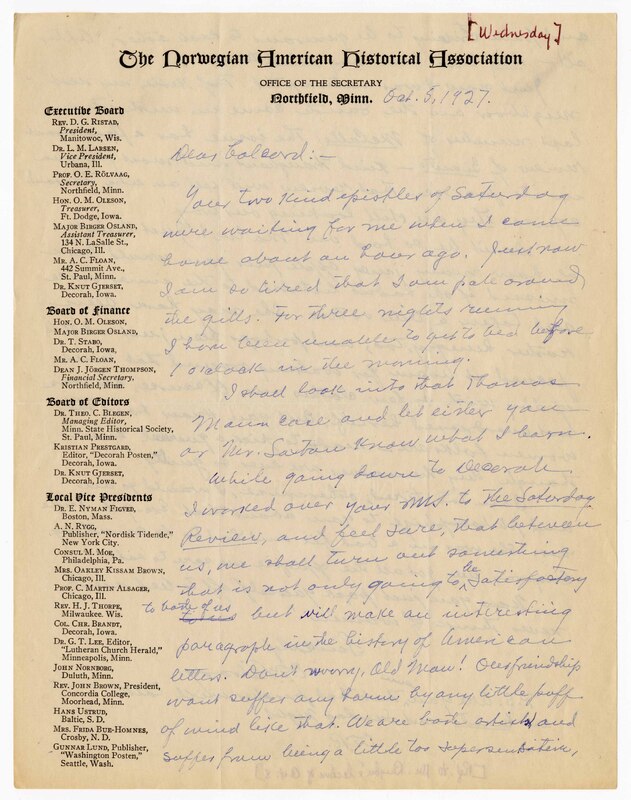 [Wednesday]
The Norwegian American Historical Association
OFFICE OF THE SECRETARY
Northfield, Minn. Oct. 5, 1927.
Executive Board
REV. D. G. RISTAD,
President,
Manitowoc, Wis.
DR. L. M. LARSEN,
Vice President,
Urbana, Ill.
PROF. O. E. RÖLVAAG,
Secretary,
Northfield, Minn.
HON. O. M. OLESON,
Treasurer,
Ft. Dodge, Iowa.
MAJOR BIRGER OSLAND,
Assistant Treasurer,
134 N. LaSalle St.,
Chicago, Ill.
MR. A. C. FLOAN,
442 Summit Ave.,
St. Paul, Minn.
DR. KNUT GJERSET,
Decorah, Iowa.
Board of Finance
HON. O. M. OLESON,
MAJOR BIRGER OSLAND,
DR. T. STABO,
Decorah, Iowa.
MR. A. C. FLOAN,
DEAN J. JÖRGEN THOMPSON,
Financial Secretary,
Northfield, Minn.
Board of Editors
DR. THEO. C. BLEGEN,
Managing Editor,
Minn. State Historical Society,
St. Paul, Minn.
KRISTIAN PRESTGARD,
Editor, "Decorah Posten,"
Decorah, Iowa.
DR. KNUT GJERSET,
Decorah, Iowa.
Local Vice Presidents
DR. E. NYMAN FIGVED,
Boston, Mass.
A. N. RYGG,
Publisher, "Nordisk Tidende,"
New York City.
CONSUL M. MOE,
Philadelphia, Pa.
MRS. OAKLEY KISSAM BROWN,
Chicago, Ill.
PROF. C. MARTIN ALSAGER,
Chicago, Ill.
REV. H. J. THORPE,
Milwaukee, Wis.
COL. CHR. BRANDT,
Decorah, Iowa.
DR. G. T. LEE, Editor,
"Lutheran Church Herald,"
Minneapolis, Minn.
JOHN NORNBORG,
Duluth, Minn.
REV. JOHN BROWN, President,
Concordia College,
Moorhead, Minn.
HANS USTRUD,
Baltic, S. D.
MRS. FRIDA BUE-HOMNES,
Crosby, N. D.
GUNNAR LUND, Publisher,
"Washington Posten,"
Seattle, Wash.
Dear Colcord:—
Your two kind epistles of Saturday
were waiting for me when I came
home about an hour ago. Just now
I am so tired that I am pale around
the gills. For three nights running
I have been unable to get to bed before
1 o'clock in the morning.
I shall look into that Thomas
Mann case and let either you
or Mr. Saxton know what I learn.
While going down to Decorah
I worked over your MS. to the Saturday
Review, and feel sure, that between
us, we shall turn out something
that is not only going to be satisfactory
to both of us but will make an interesting
paragraph in the history of American
letters. Don't worry, Old Man! Our friendship
wont suffer any harm by any little puff
of wind like that. We are both artists and
suffer from being a little too supersensitive,